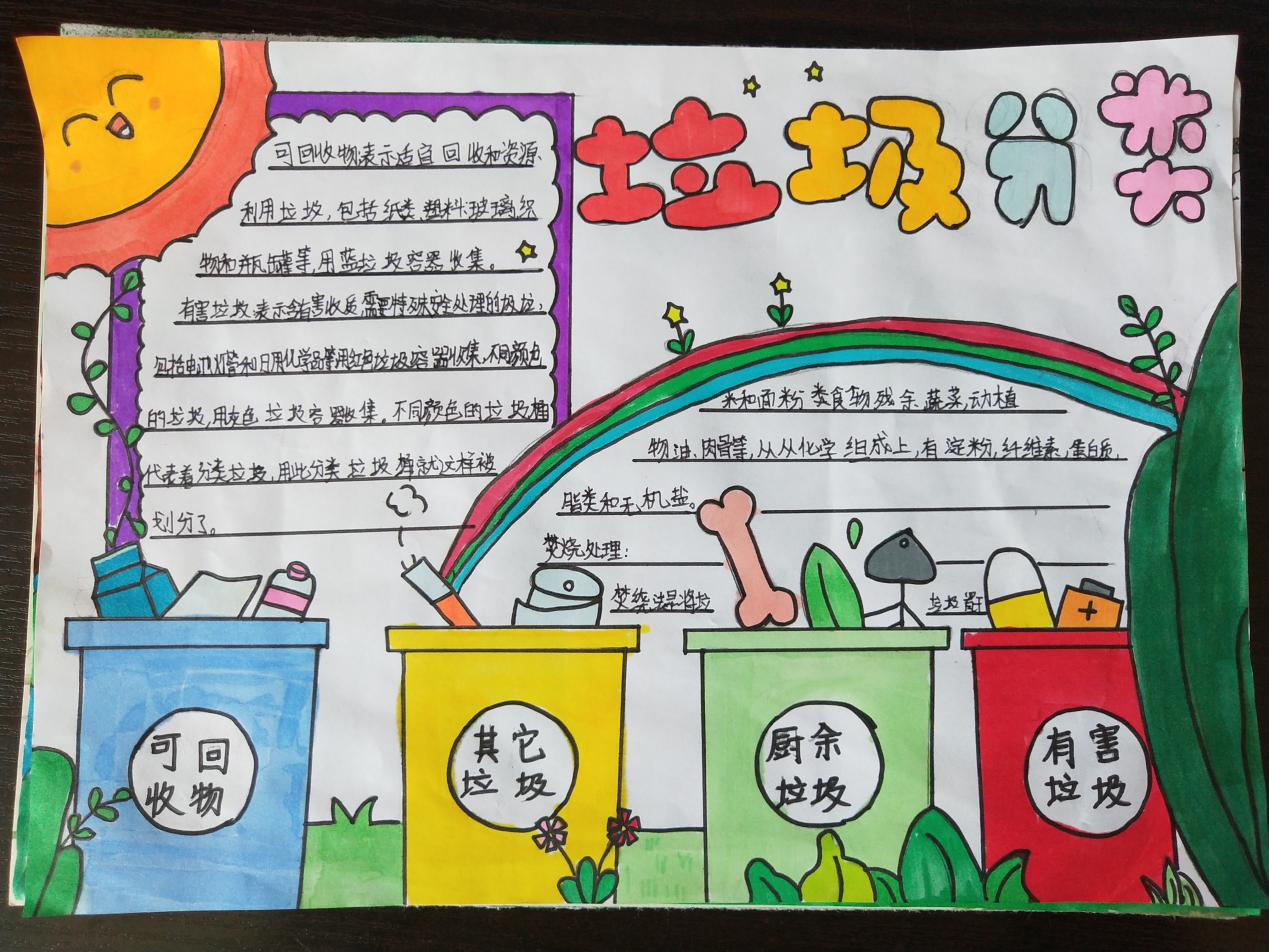 垃圾分类
可回收物表示适宜回收和资源
利用垃圾,包括纸类,塑料,玻璃,织
物和瓶罐等,用蓝垃圾容器收集。
有害垃圾表示含有害收质,需要特殊安全处理的圾垃,
包括电池灯管和日用化学品等用红色垃圾容器收集,不同颜色
的垃圾,用灰色垃圾容器收集。不同颜色的垃圾桶
代表着分类垃圾,用此分类垃圾桶就这样被
划分了。
米和面粉类食物残余蔬菜,动植
物油、肉骨等,从从化学组成上,有淀粉,纤维素,蛋白质,
脂类和无机盐。
焚烧处理:
焚烧法是将垃
垃圾置于
可回
收物
其它
垃圾
厨余
垃圾
有害
垃圾